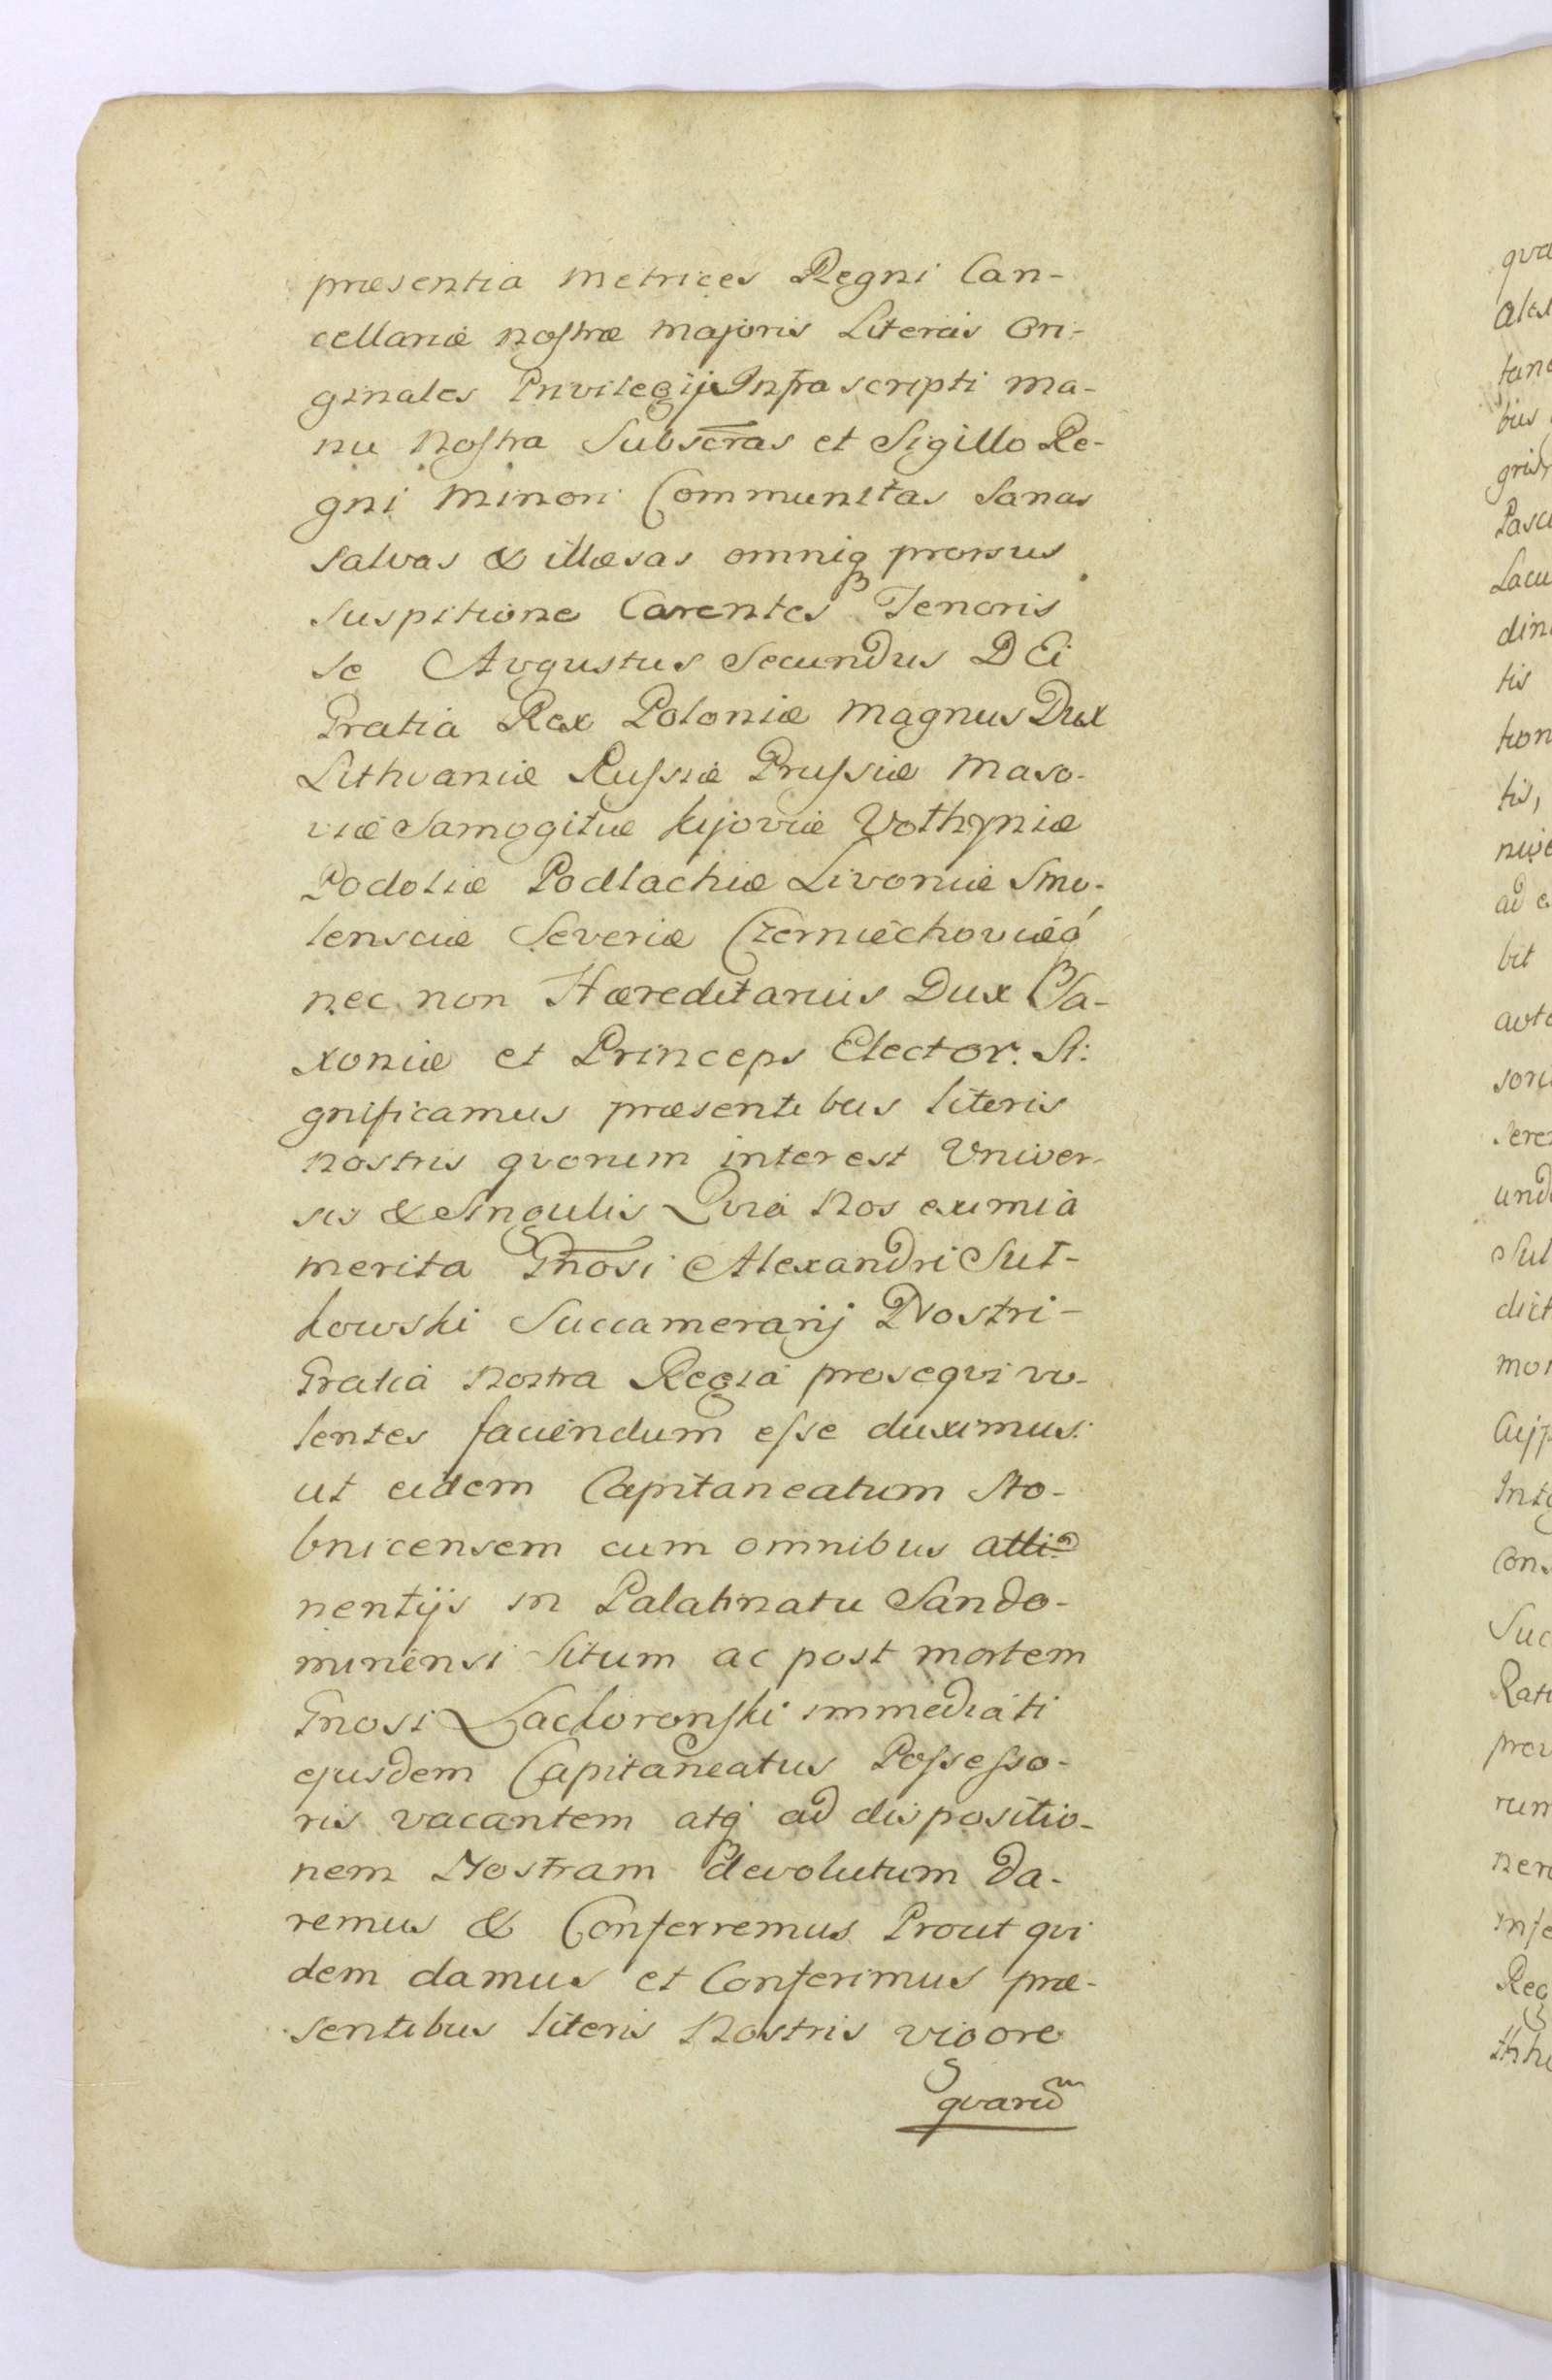 præsentia Metrices Regni Can-
cellariæ nostræ Majoris Literas Ori-
ginales Privilegij Infra scripti ma-
nu Nostra Subscras et Sigillo Re-
gni Minori Communitas Sanas
Salvas & illæsas omniq prorsus
Suspitione Carentes Tenoris
se Avgustus Secundus DEi
Gratia Rex Poloniæ Magnus Dux
Lithvaniæ Russiæ Prussiæ Maso-
viæ Samogitiæ Kijoviæ Volhyniæ
Podoliæ Podlachiæ Livoniæ Smo-
lensciæ Severiæ Czerniechoviæq
nec non Hæreditarius Dux Sa-
xoniæ et Princeps Elector. Si-
gnificamus præsentibus literis
Nostris qvorum interest Univer-
sis & Singulis Qvia Nos eximia
merita Gnosi Alexandri Sul-
kowski Succamerarij Nostri-
Gratia Nostra Regia proseqvi vo-
lentes faciendum esse duximus
ut eidem Capitaneatum Sto-
bnicensem cum omnibus atti-
nentijs in Palatinatu Sando-
miriensi Situm ac post mortem
Gnosi Lackoronski immediati
ejusdem Capitaneatus Possesso-
ris vacantem atq ad dispositio-
nem Nostram devolutum Da-
remus & Conferremus Prout qvi
dem damus et Conferimus præ-
sentibus literis Nostris vigore
qvarum